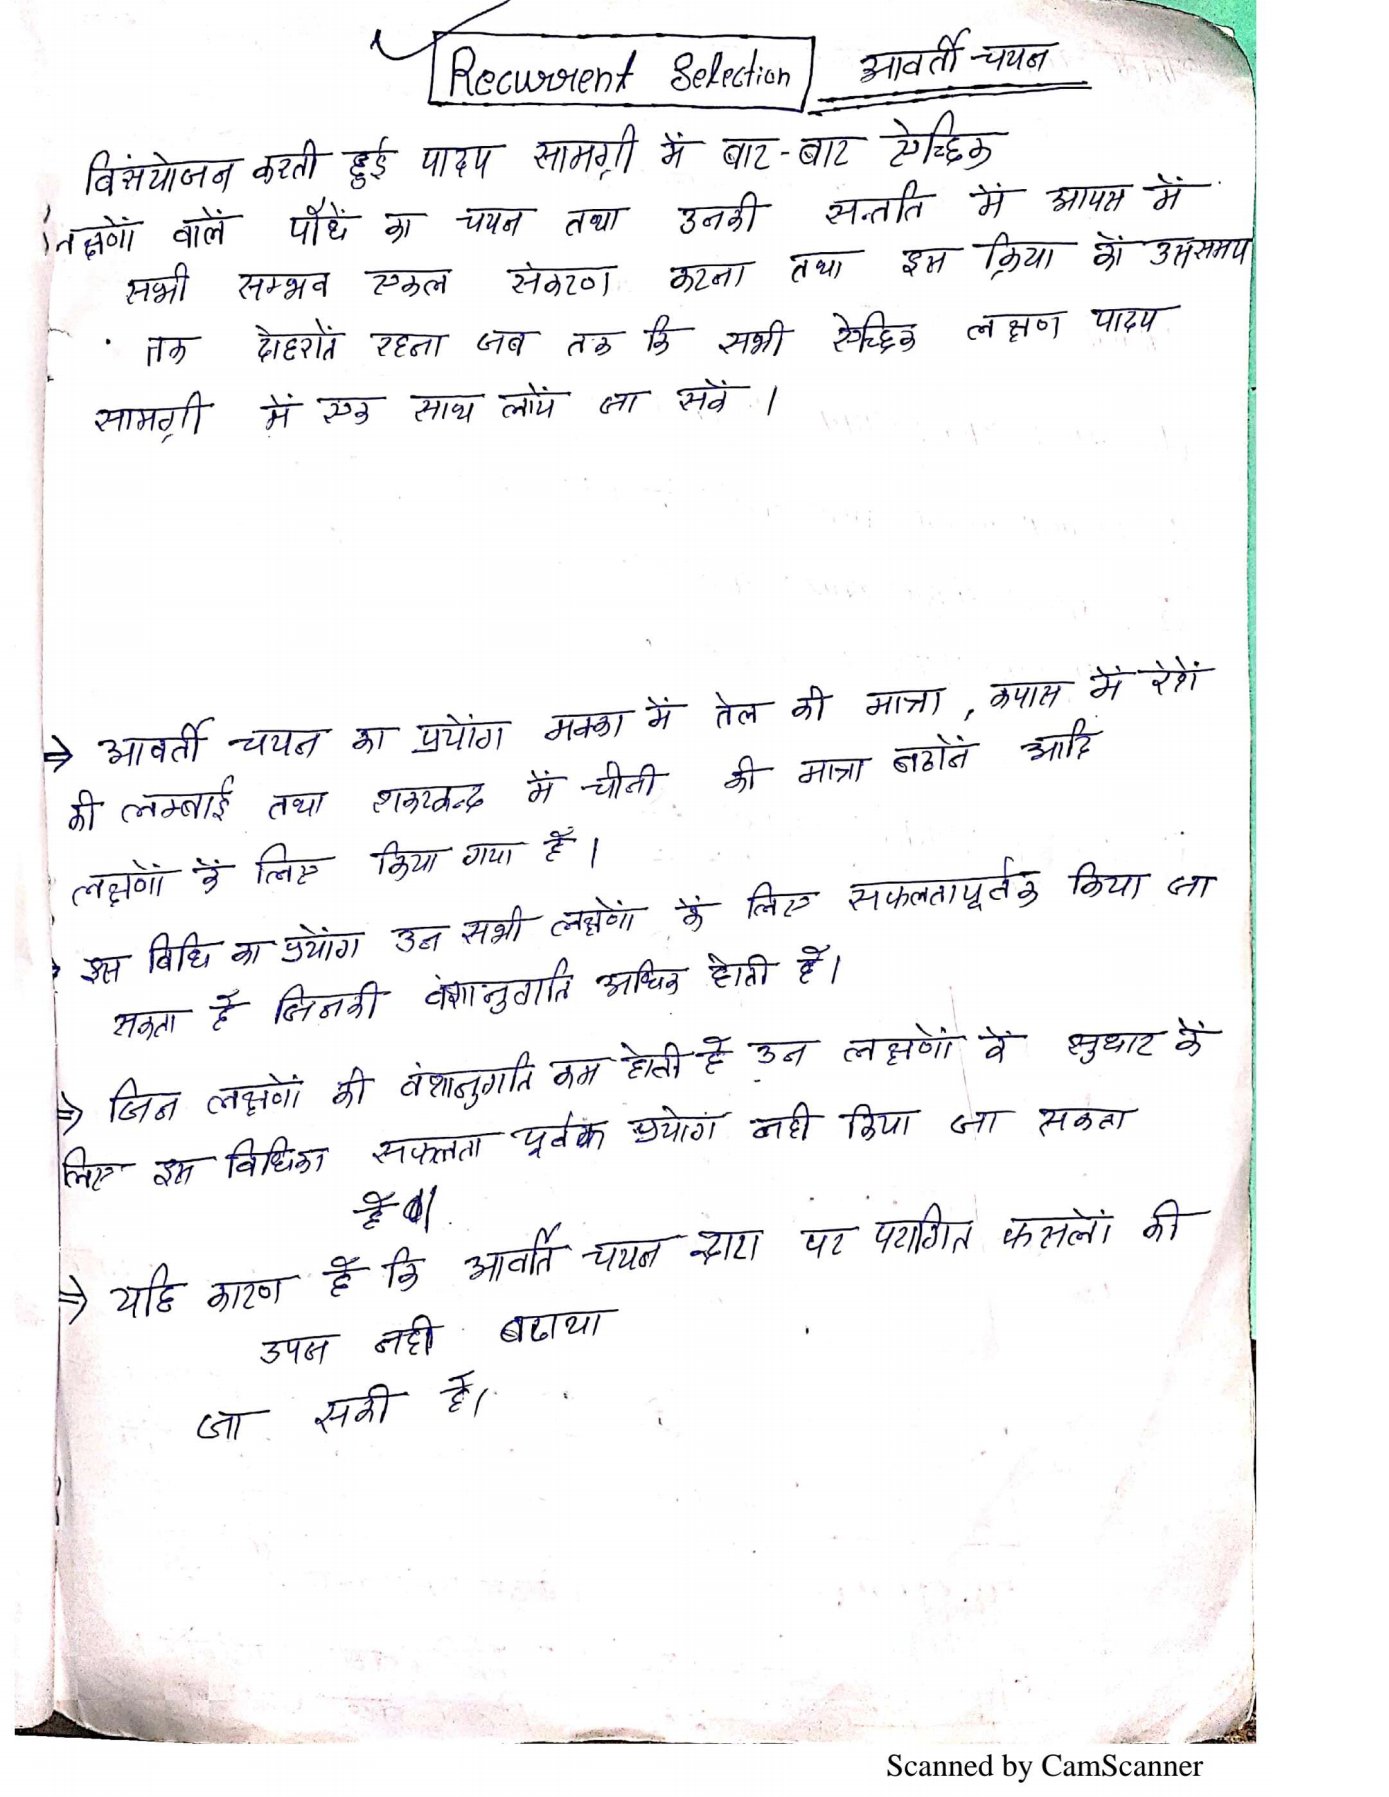 Recurrent Selection आवर्ती चयन
विसंयोजन करती हुई पादप सामग्री में बार-बार ऐच्छिक
लक्षणों वालें पौधें का चयन तथा उनकी सन्तति में आपस में
सभी सम्भव एकल संकरण करना तथा इस क्रिया कों उससमय
तक दोहरातें रहना जब तक कि सभी ऐच्छिक लक्षण पादप
सामग्री में एक साथ लायें जा सकें ।
⇒ आवर्ती चयन का प्रयोंग मक्का में तेल की मात्रा , कपास में रेशें
की लम्बाई तथा शकरकन्द में चीनी की मात्रा बढानें आदि
लक्षणों कें लिए किया गया हैं ।
इस विधि का प्रयोंग उन सभी लक्षणों कें लिए सफलतापूर्वक किया जा
सकता हैं जिनकी वंशानुगति अधिक होती हैं।
⇒ जिन लक्षणों की वंशानुगति कम होती हैं उन लक्षणों कें सुधार कें
लिए इस विधिका सफलता पूर्वक प्रयोग नही किया जा सकता
हैं ।
⇒ यहि कारण हैं कि आवर्ति चयन द्वारा पर परागित फसलों की
उपज नही बढाया
जा सकी हैं।
Scanned by CamScanner